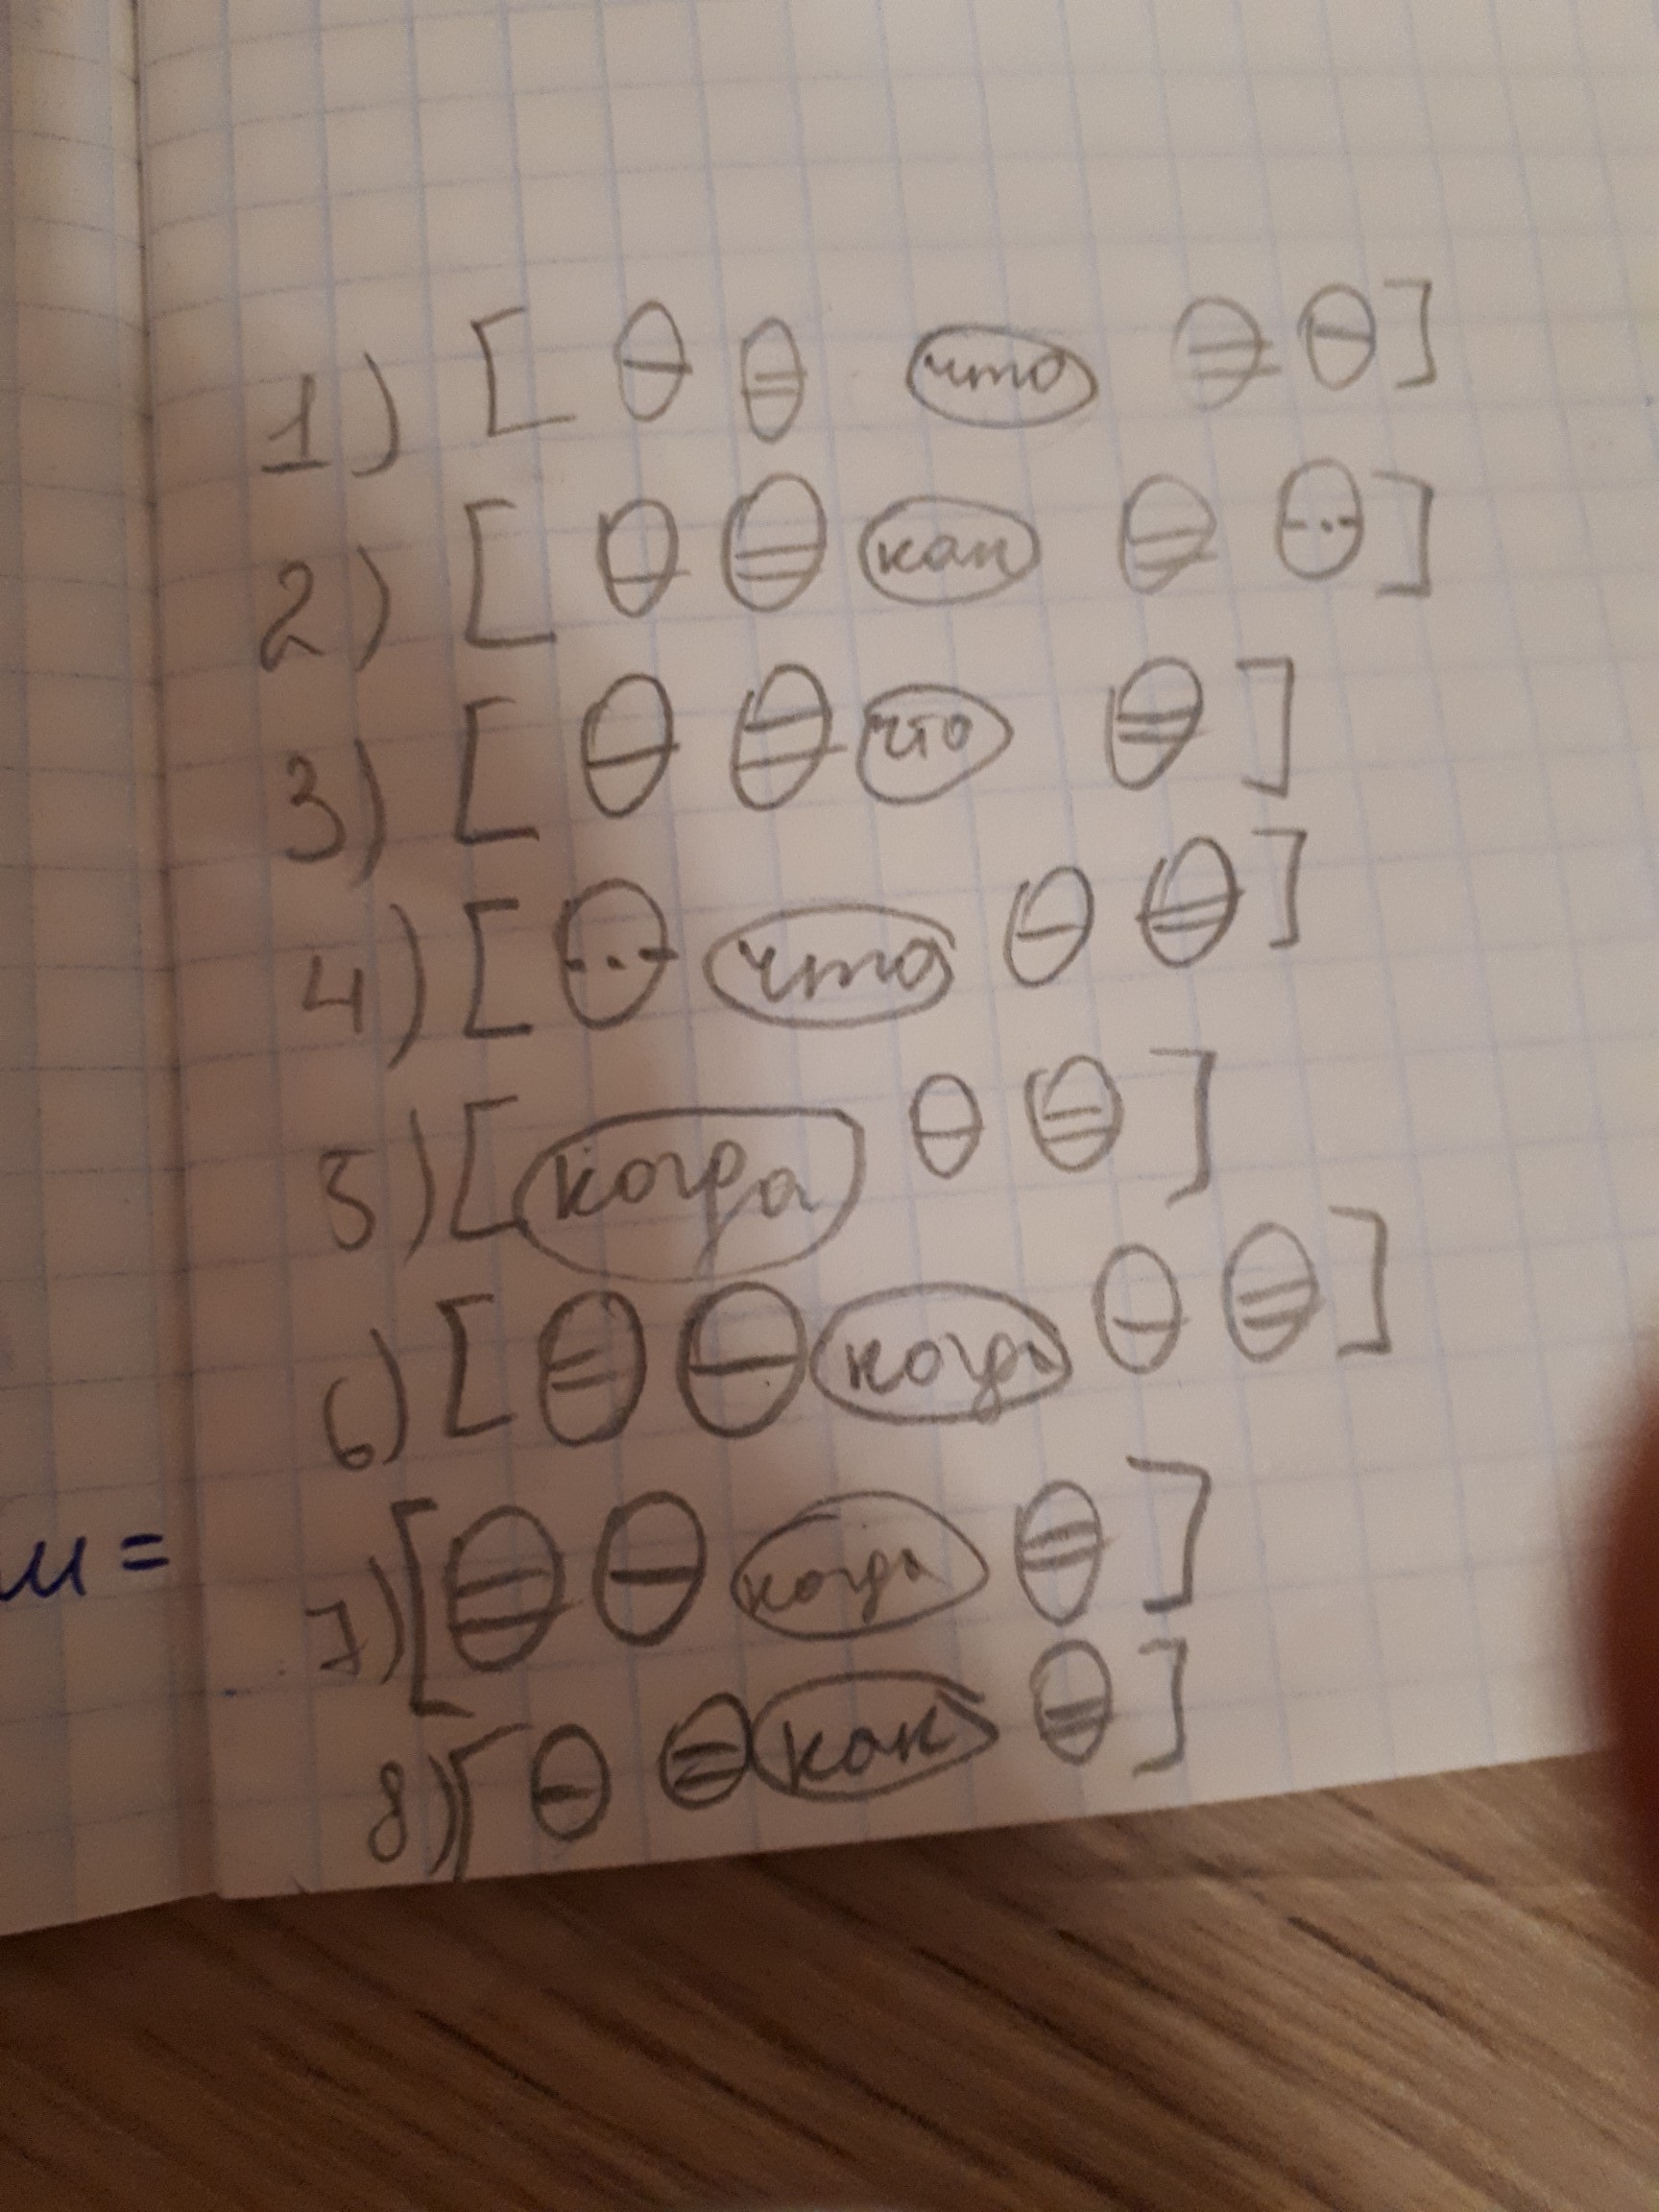 1) [ что ]
2) [ как ]
3) [ что ]
4) [ что ]
5) [ когда ]
и = 6) [ когда ]
7) [ когда ]
8) [ как ]